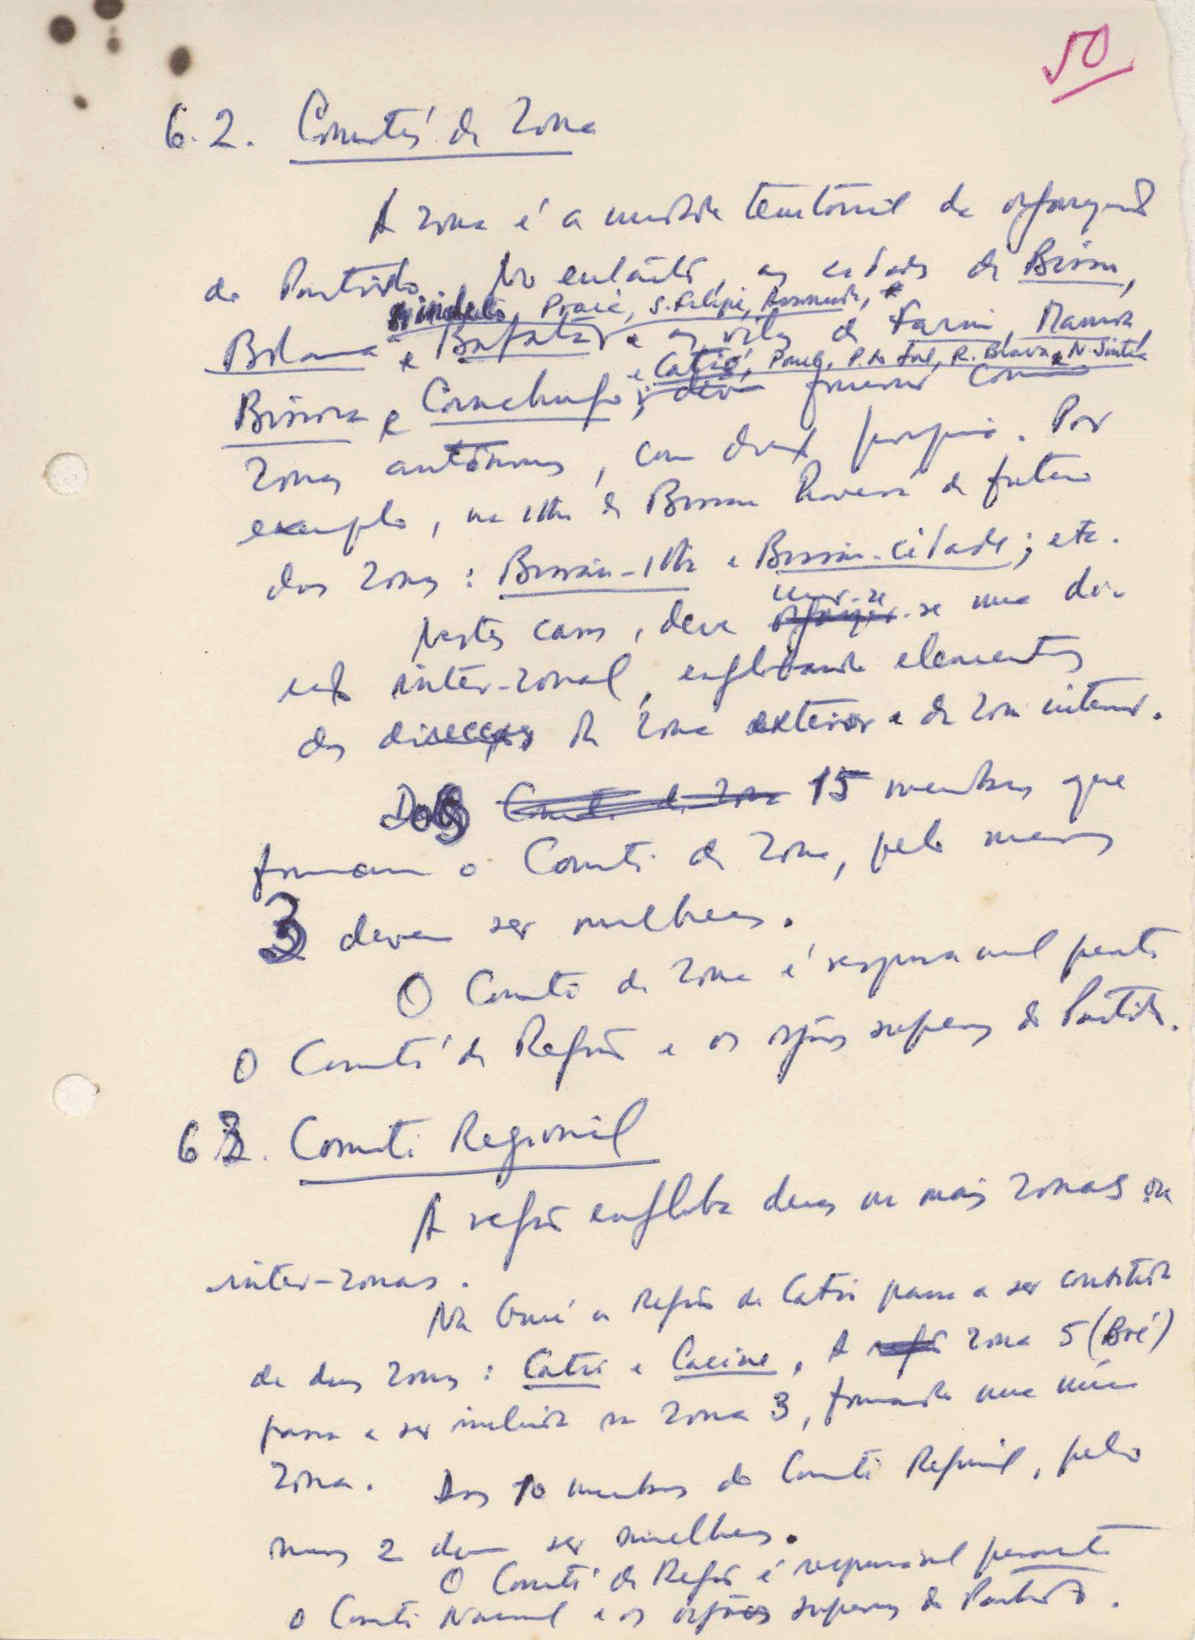 50
6.2. Comité de Zona
A zona é a unidade territorial da organização
do Partido. No entanto, as cidades de Bissau,
Mindelo, Praia, S. Filipe, Assomada, e
Bolama e Bafatá e as vilas de Farim, Mansoa,
e Catió, P. do Sol, R. Brava e N. Sintra
Bissora e Canchungo; devem funcionar como
zonas autónomas, com direcção própria. Por
exemplo, na ilha de Bissau haverá de futuro
duas zonas: Bissau-Ilha e Bissau-cidade; etc.
criar-se
Nestes casos, deve organizar-se uma direc-
ção inter-zonal, englobando elementos
das direcções da zona exterior e da zona interior.
Dos Comité de Zona 15 membros que
formam o Comité de Zona, pelo menos
3 devem ser mulheres.
O Comité de Zona é responsável perante
o Comité de Região e os orgãos superiores do Partido.
6.3. Comité Regional
A região engloba duas ou mais zonas ou
inter-zonas.
Na Guiné a Região de Catió passa a ser constituida
de duas zonas: Catió e Cacine. A região zona 5 (Boé)
passa a ser incluida na zona 3, formando uma única
zona. Dos 10 membros do Comité Regional, pelo
menos 2 devem ser mulheres.
O Comité da Região é responsável perante
o Comité Nacional e os orgãos superiores do Partido.